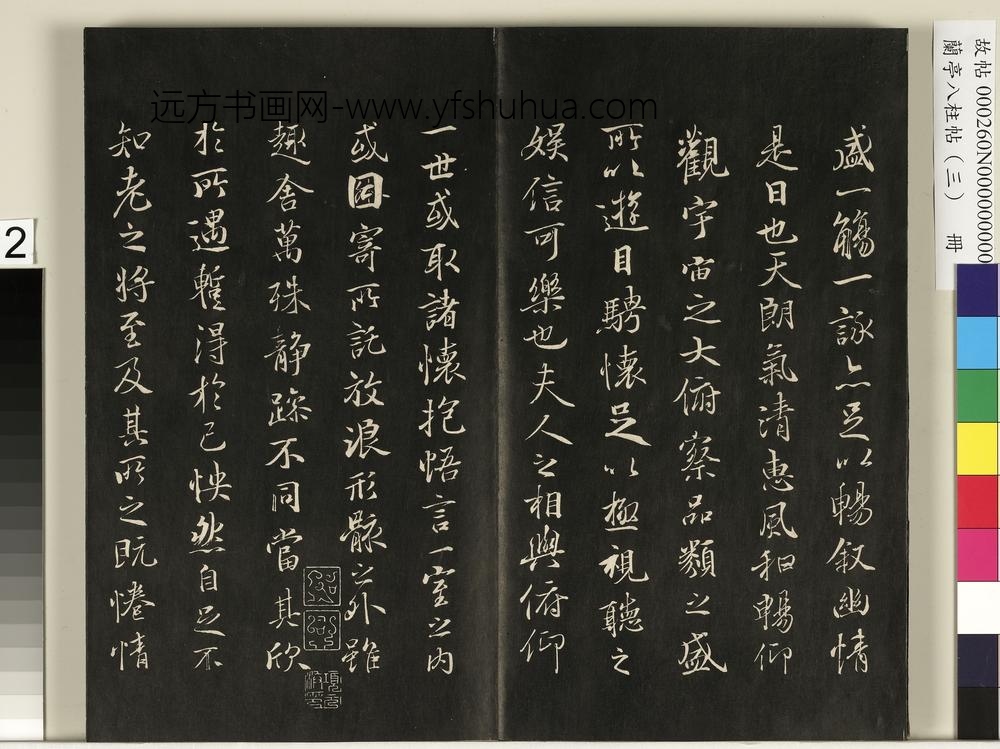 盛一觴一詠亦足以暢叙幽情
是日也天朗氣清惠風和暢仰
觀宇宙之大俯察品類之盛
所以遊目騁懷足以極視聽之
娛信可樂也夫人之相與俯仰
一世或取諸懷抱悟言一室之內
或因寄所託放浪形骸之外雖
趣舍萬殊静躁不同當其欣
於所遇暫得於己怏然自足不
知老之將至及其所之既惓情
远方书画网-www.yfshuhua.com
故帖 000260N00000000000
蘭亭八柱帖(三) 冊
2